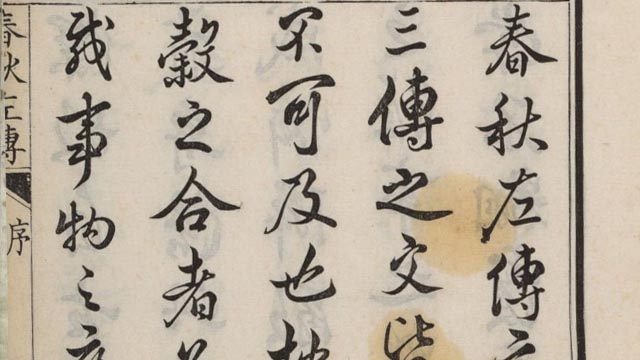 春秋左傳
三傳之文皆
不可及也
穀之合者
戟事物之
春秋左傳
序